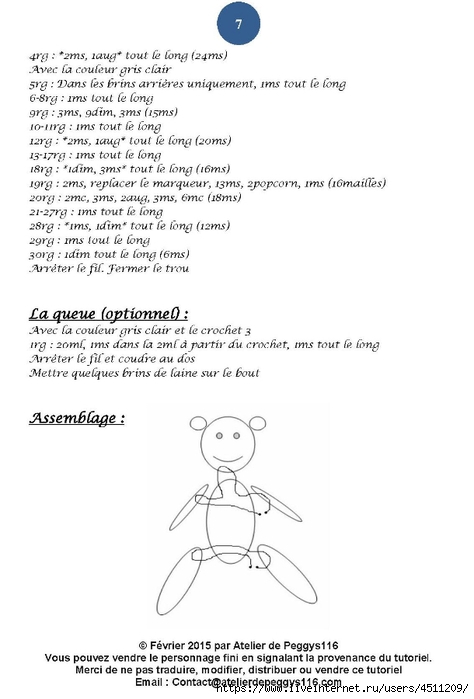 7
4rg : *2ms, 1aug* tout le long (24ms)
Avec la couleur gris clair
5rg : Dans les brins arrières uniquement, 1ms tout le long
6-8rg : 1ms tout le long
9rg : 3ms, 9dim, 3ms (15ms)
10-11rg : 1ms tout le long
12rg : *2ms, 1aug* tout le long (20ms)
13-17rg : 1ms tout le long
18rg : *1dim, 3ms* tout le long (16ms)
19rg : 2ms, replacer le marqueur, 13ms, 2popcorn, 1ms (16mailles)
20rg : 2mc, 3ms, 2aug, 3ms, 6mc (18ms)
21-27rg : 1ms tout le long
28rg : *1ms, 1dim* tout le long (12ms)
29rg : 1ms tout le long
30rg : 1dim tout le long (6ms)
Arrêter le fil. Fermer le trou
La queue (optionnel) :
Avec la couleur gris clair et le crochet 3
1rg : 20ml, 1ms dans la 2ml à partir du crochet, 1ms tout le long
Arrêter le fil et coudre au dos
Mettre quelques brins de laine sur le bout
Assemblage :
© Février 2015 par Atelier de Peggys116
Vous pouvez vendre le personnage fini en signalant la provenance du tutoriel.
Merci de ne pas traduire, modifier, distribuer ou vendre ce tutoriel
Email : Contact@atelierdepeggys116.com
https://www.liveinternet.ru/users/4511209/